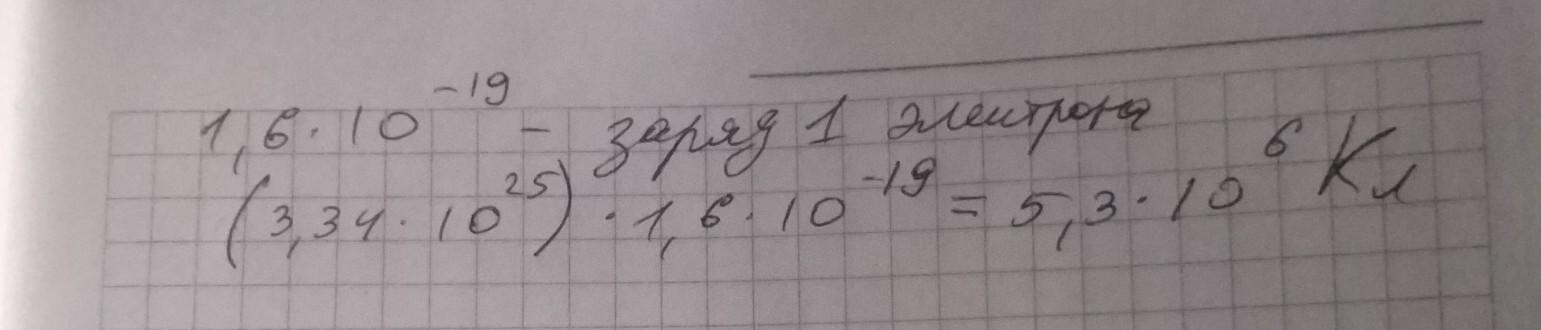 1,6·10⁻¹⁹ – заряд 1 электрона
(3,34·10²⁵)·1,6·10⁻¹⁹ = 5,3·10⁶ Кл